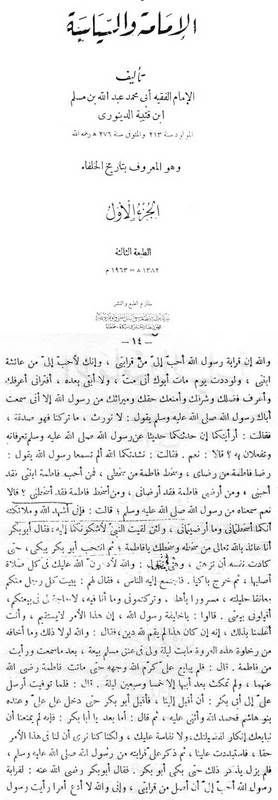 الإمامة والسياسة
تأليف
الإمام الفقيه أبى محمد عبد الله بن مسلم
ابن قتيبة الدينورى
المولود سنة ٢١٣ والمتوفى سنة ٢٧٦ رحمه الله
وهو المعروف بتاريخ الخلفاء
الجزء الأول
الطبعة الثالثة
١٣٨٢ ھ = ١٩٦٣ م
ملتزم الطبع والنشر
— ١٤ —
والله إن قرابة رسول الله أحب إلى من قرابتى ، وإنك لأحب إلى من عائشة
ابنتى ، ولوددت يوم مات أبوك أنى مت ، ولا أبقى بعده ، أفترانى أعرفك
وأعرف فضلك وشرفك وأمنعك حقك وميراثك من رسول الله إلا أنى سمعت
أباك رسول الله صلى الله عليه وسلم يقول : لا نورث ، ما تركنا فهو صدقة ،
فقالت : أرأيتكما إن حدثتكما حديثا عن رسول الله صلى الله عليه وسلم تعرفانه
وتفعلان به ؟ قالا : نعم . فقالت : نشدتكما الله ألم تسمعا رسول الله يقول :
رضا فاطمة من رضاى ، وسخط فاطمة من سخطى ، فمن أحب فاطمة ابنتى فقد
أحبنى ، ومن أرضى فاطمة فقد أرضانى ، ومن أسخط فاطمة فقد أسخطنى ؟ قالا
نعم سمعناه من رسول الله صلى الله عليه وسلم ؛ قالت : فإنى أشهد الله وملائكته
أنكما أسخطتمانى وما أرضيتمانى ، ولئن لقيت النبى لأشكونكما إليه ، فقال أبو بكر
أنا عائذ بالله تعالى من سخطه وسخطك يا فاطمة ؛ ثم انتحب أبو بكر يبكى ، حتى
كادت نفسه أن تزهق ، وهى تقول : والله لأدعون الله عليك فى كل صلاة
أصليها ، ثم خرج باكيا . فاجتمع إليه الناس ، فقال لهم : يبيت كل رجل منكم
معانقا حليلته ، مسرورا بأهله ، وتركتمونى وما أنا فيه ، لا حاجة لى فى بيعتكم ،
أقيلونى بيعتى . قالوا : يا خليفة رسول الله ، إن هذا الأمر لا يستقيم ، وأنت
أعلمنا بذلك ، إنه إن كان هذا لم يقم لله دين ، فقال : والله لولا ذلك وما أخافه
من رخاوة هذه العروة ما بت ليلة ولى فى عنق مسلم بيعة ، بعد ما سمعت ورأيت
من فاطمة . قال : فلم يبايع على كرم الله وجهه حتى ماتت فاطمة رضى الله
عنهما ، ولم تمكث بعد أبيها إلا خمسا وسبعين ليلة . قال : فلما توفيت أرسل
على إلى أبى بكر : أن أقبل إلينا ، فأقبل أبو بكر حتى دخل على على وعنده
بنو هاشم فحمد الله وأثنى عليه ، ثم قال : أما بعد يا أبا بكر : فإنه لم يمنعنا أن
نبايعك إنكار لفضيلتك ، ولا نفاسة عليك ، ولكنا كنا نرى أن لنا فى هذا الأمر
حقا ، فاستبددت علينا ، ثم ذكر على قرابته من رسول الله صلى الله عليه وسلم ،
فلم يزل يذكر ذلك حتى بكى أبو بكر . فقال أبو بكر رضى الله عنه : لقرابة
رسول الله أحب إلى أن أصل من قرابتى ، وإنى والله لا أدع أمرا رأيت رسول